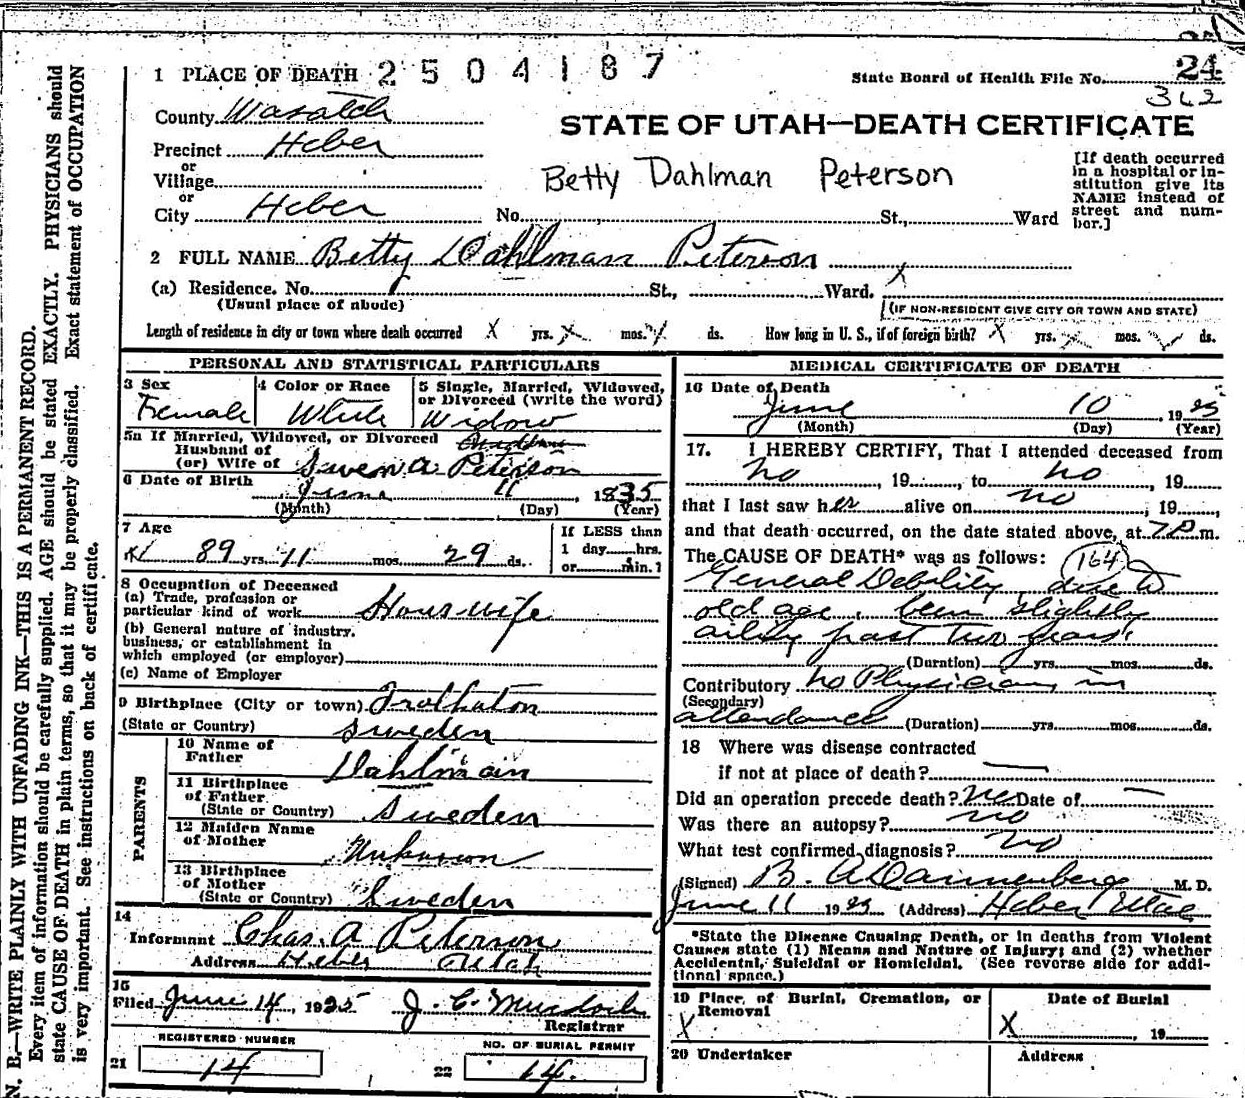 24
1 PLACE OF DEATH 2504187
State Board of Health File No. 362
County Wasatch
STATE OF UTAH—DEATH CERTIFICATE
Precinct Heber
or
Village
or
City Heber No. St., Ward
Betty Dahlman Peterson
[If death occurred
in a hospital or in-
stitution give its
NAME instead of
street and num-
ber.]
2 FULL NAME Betty Dahlman Peterson
(a) Residence. No. St., Ward. X
(Usual place of abode)
(IF NON-RESIDENT GIVE CITY OR TOWN AND STATE)
Length of residence in city or town where death occurred X yrs. X mos. ds. How long in U. S., if of foreign birth? X yrs. X mos. ds.
PERSONAL AND STATISTICAL PARTICULARS
3 Sex
Female
4 Color or Race
White
5 Single, Married, Widowed,
or Divorced (write the word)
Widow
5a If Married, Widowed, or Divorced
Husband of
(or) Wife of Swen A Peterson
6 Date of Birth
June 11, 1835
(Month) (Day) (Year)
7 Age
89 yrs. 11 mos. 29 ds.
If LESS than
1 day hrs.
or min.?
8 Occupation of Deceased
(a) Trade, profession or
particular kind of work Hous wife
(b) General nature of industry,
business, or establishment in
which employed (or employer)
(c) Name of Employer
9 Birthplace (City or town)
(State or Country) Sweden
PARENTS
10 Name of
Father Dahlman
11 Birthplace
of Father
(State or Country) Sweden
12 Maiden Name
of Mother Unknown
13 Birthplace
of Mother
(State or Country) Sweden
14
Informant Chas. A Peterson
Address Heber Utah
15
Filed June 14, 1925 J. C. Murdock
Registrar
REGISTERED NUMBER
21 14
NO. OF BURIAL PERMIT
22 14.
MEDICAL CERTIFICATE OF DEATH
16 Date of Death
June 10, 1925
(Month) (Day) (Year)
17. I HEREBY CERTIFY, That I attended deceased from
no, 19, to no, 19
that I last saw her alive on no, 19,
and that death occurred, on the date stated above, at m.
The CAUSE OF DEATH* was as follows: 164
General Debility, due to
old age, been slightly
ailing past two years.
(Duration) yrs. mos. ds.
Contributory no Physician in
(Secondary)
attendance (Duration) yrs. mos. ds.
18 Where was disease contracted
if not at place of death? —
Did an operation precede death? no Date of —
Was there an autopsy? no
What test confirmed diagnosis? no
(Signed) B. A Dannenberg M. D.
June 11 1925 (Address) Heber Utah
*State the Disease Causing Death, or in deaths from Violent
Causes state (1) Means and Nature of Injury; and (2) whether
Accidental, Suicidal or Homicidal. (See reverse side for addi-
tional space.)
19 Place, of Burial, Cremation, or
Removal
X
Date of Burial
X, 19
20 Undertaker
Address
N. B.—WRITE PLAINLY WITH UNFADING INK—THIS IS A PERMANENT RECORD.
Every item of information should be carefully supplied. AGE should be stated EXACTLY. PHYSICIANS should
state CAUSE OF DEATH in plain terms, so that it may be properly classified. Exact statement of OCCUPATION
is very important. See instructions on back of certificate.